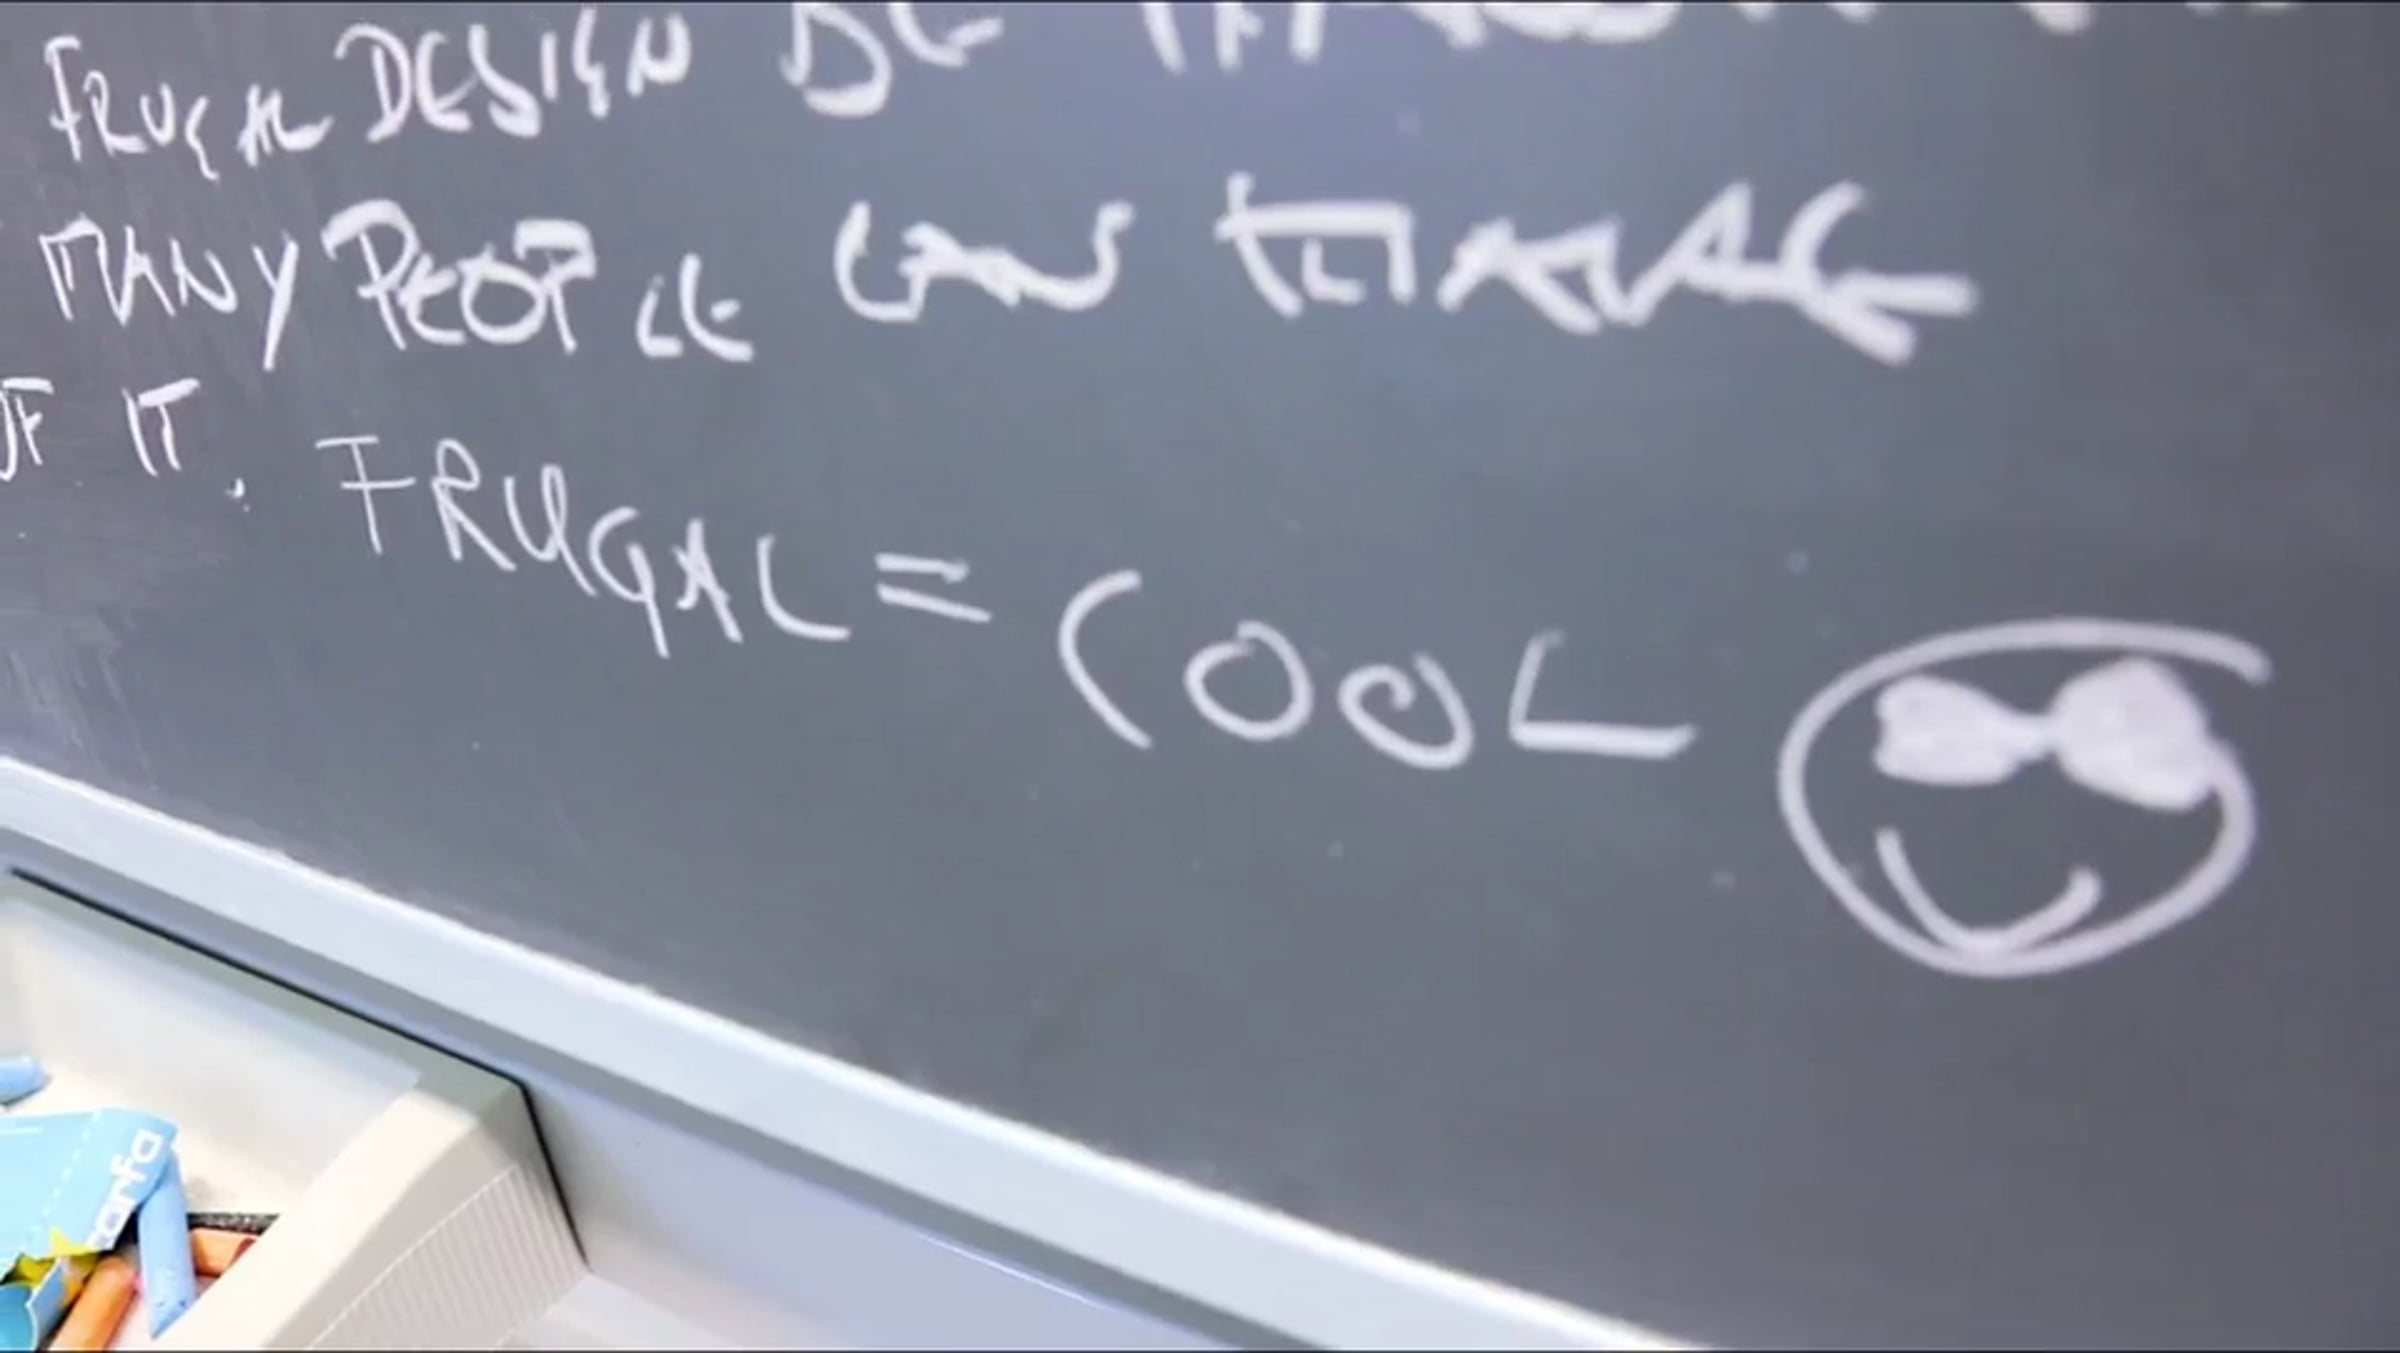 FRUGAL DESIGN BE
MANY PEOPLE CAN
OF IT. FRUGAL = COOL
carfa